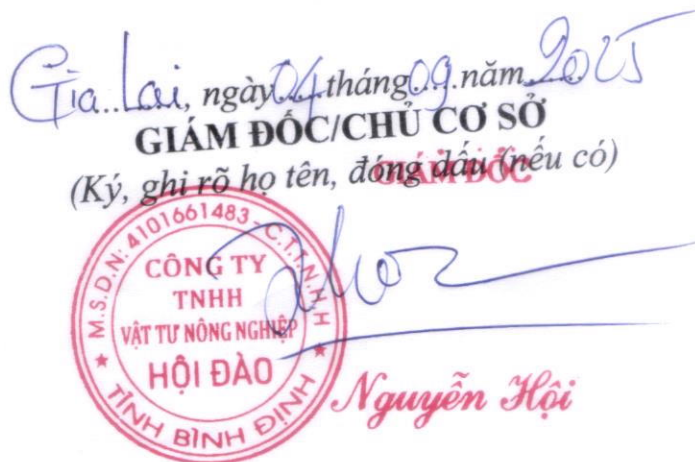 Gia Lai, ngày 04 tháng 09 năm 2025
GIÁM ĐỐC/CHỦ CƠ SỞ
(Ký, ghi rõ họ tên, đóng dấu (nếu có)
GIÁM ĐỐC
M.S.D.N: 4101661483 - C.T.T.N.H.H
CÔNG TY
TNHH
VẬT TƯ NÔNG NGHIỆP
HỘI ĐÀO
TỈNH BÌNH ĐỊNH
Nguyễn Hội